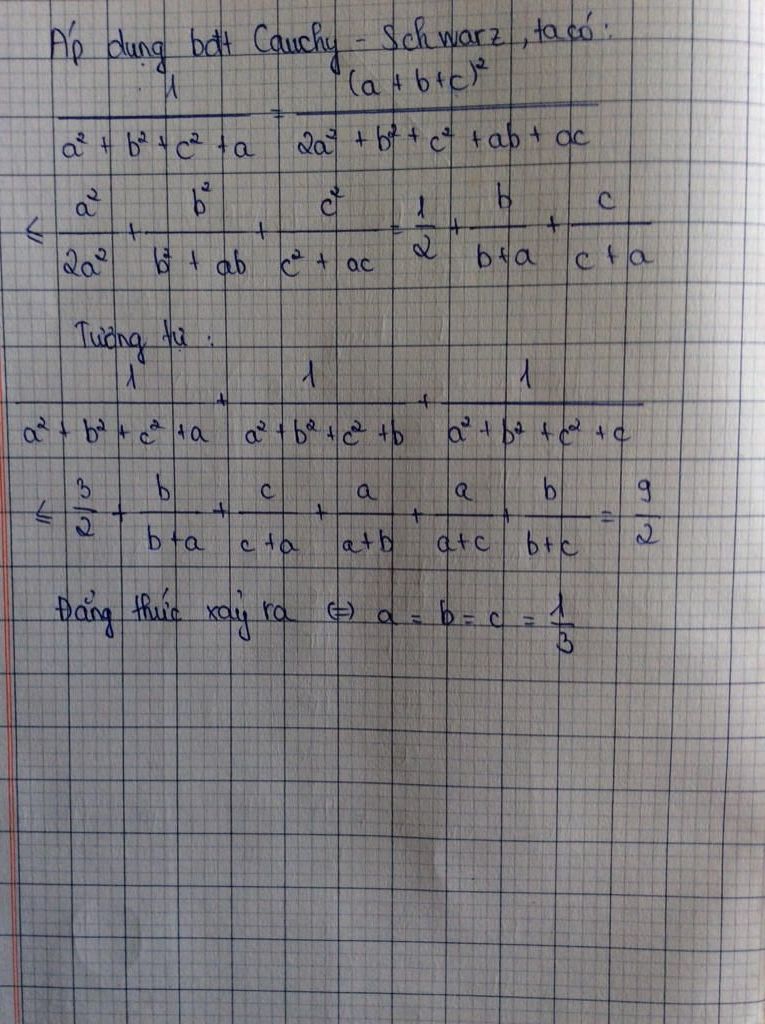 Áp dụng bđt Cauchy - Schwarz, ta có:
1/(a² + b² + c² + a) = (a + b + c)²/(2a² + b² + c² + ab + ac)
≤ a²/2a² + b²/(b² + ab) + c²/(c² + ac) = 1/2 + b/(b+a) + c/(c+a)
Tương tự:
1/(a² + b² + c² + a) + 1/(a² + b² + c² + b) + 1/(a² + b² + c² + c)
≤ 3/2 + b/(b+a) + c/(c+a) + a/(a+b) + a/(a+c) + b/(b+c) = 9/2
Đẳng thức xảy ra ⇔ a = b = c = 1/3